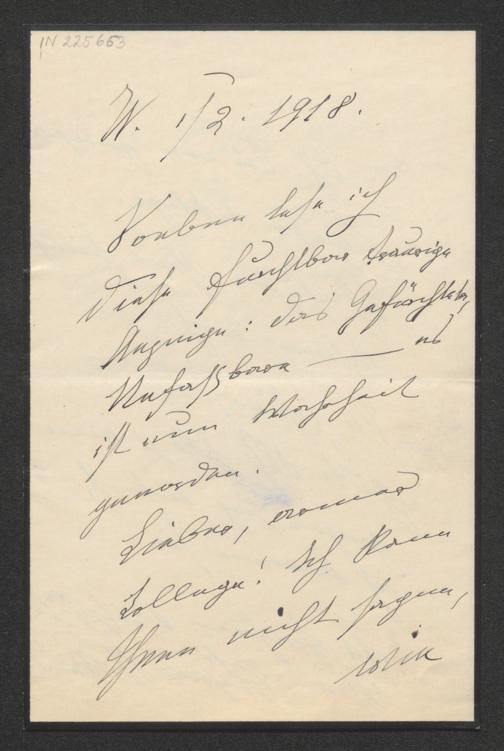 IN 225663
W. 1/2. 1918.
Soeben lese ich
diese furchtbar traurige
Anzeige: das Gefürchtete,
Unfassbare — es
ist nun Wahrheit
geworden.
Lieber, armer
Kollege! Ich kann
Ihnen nicht sagen,
wie